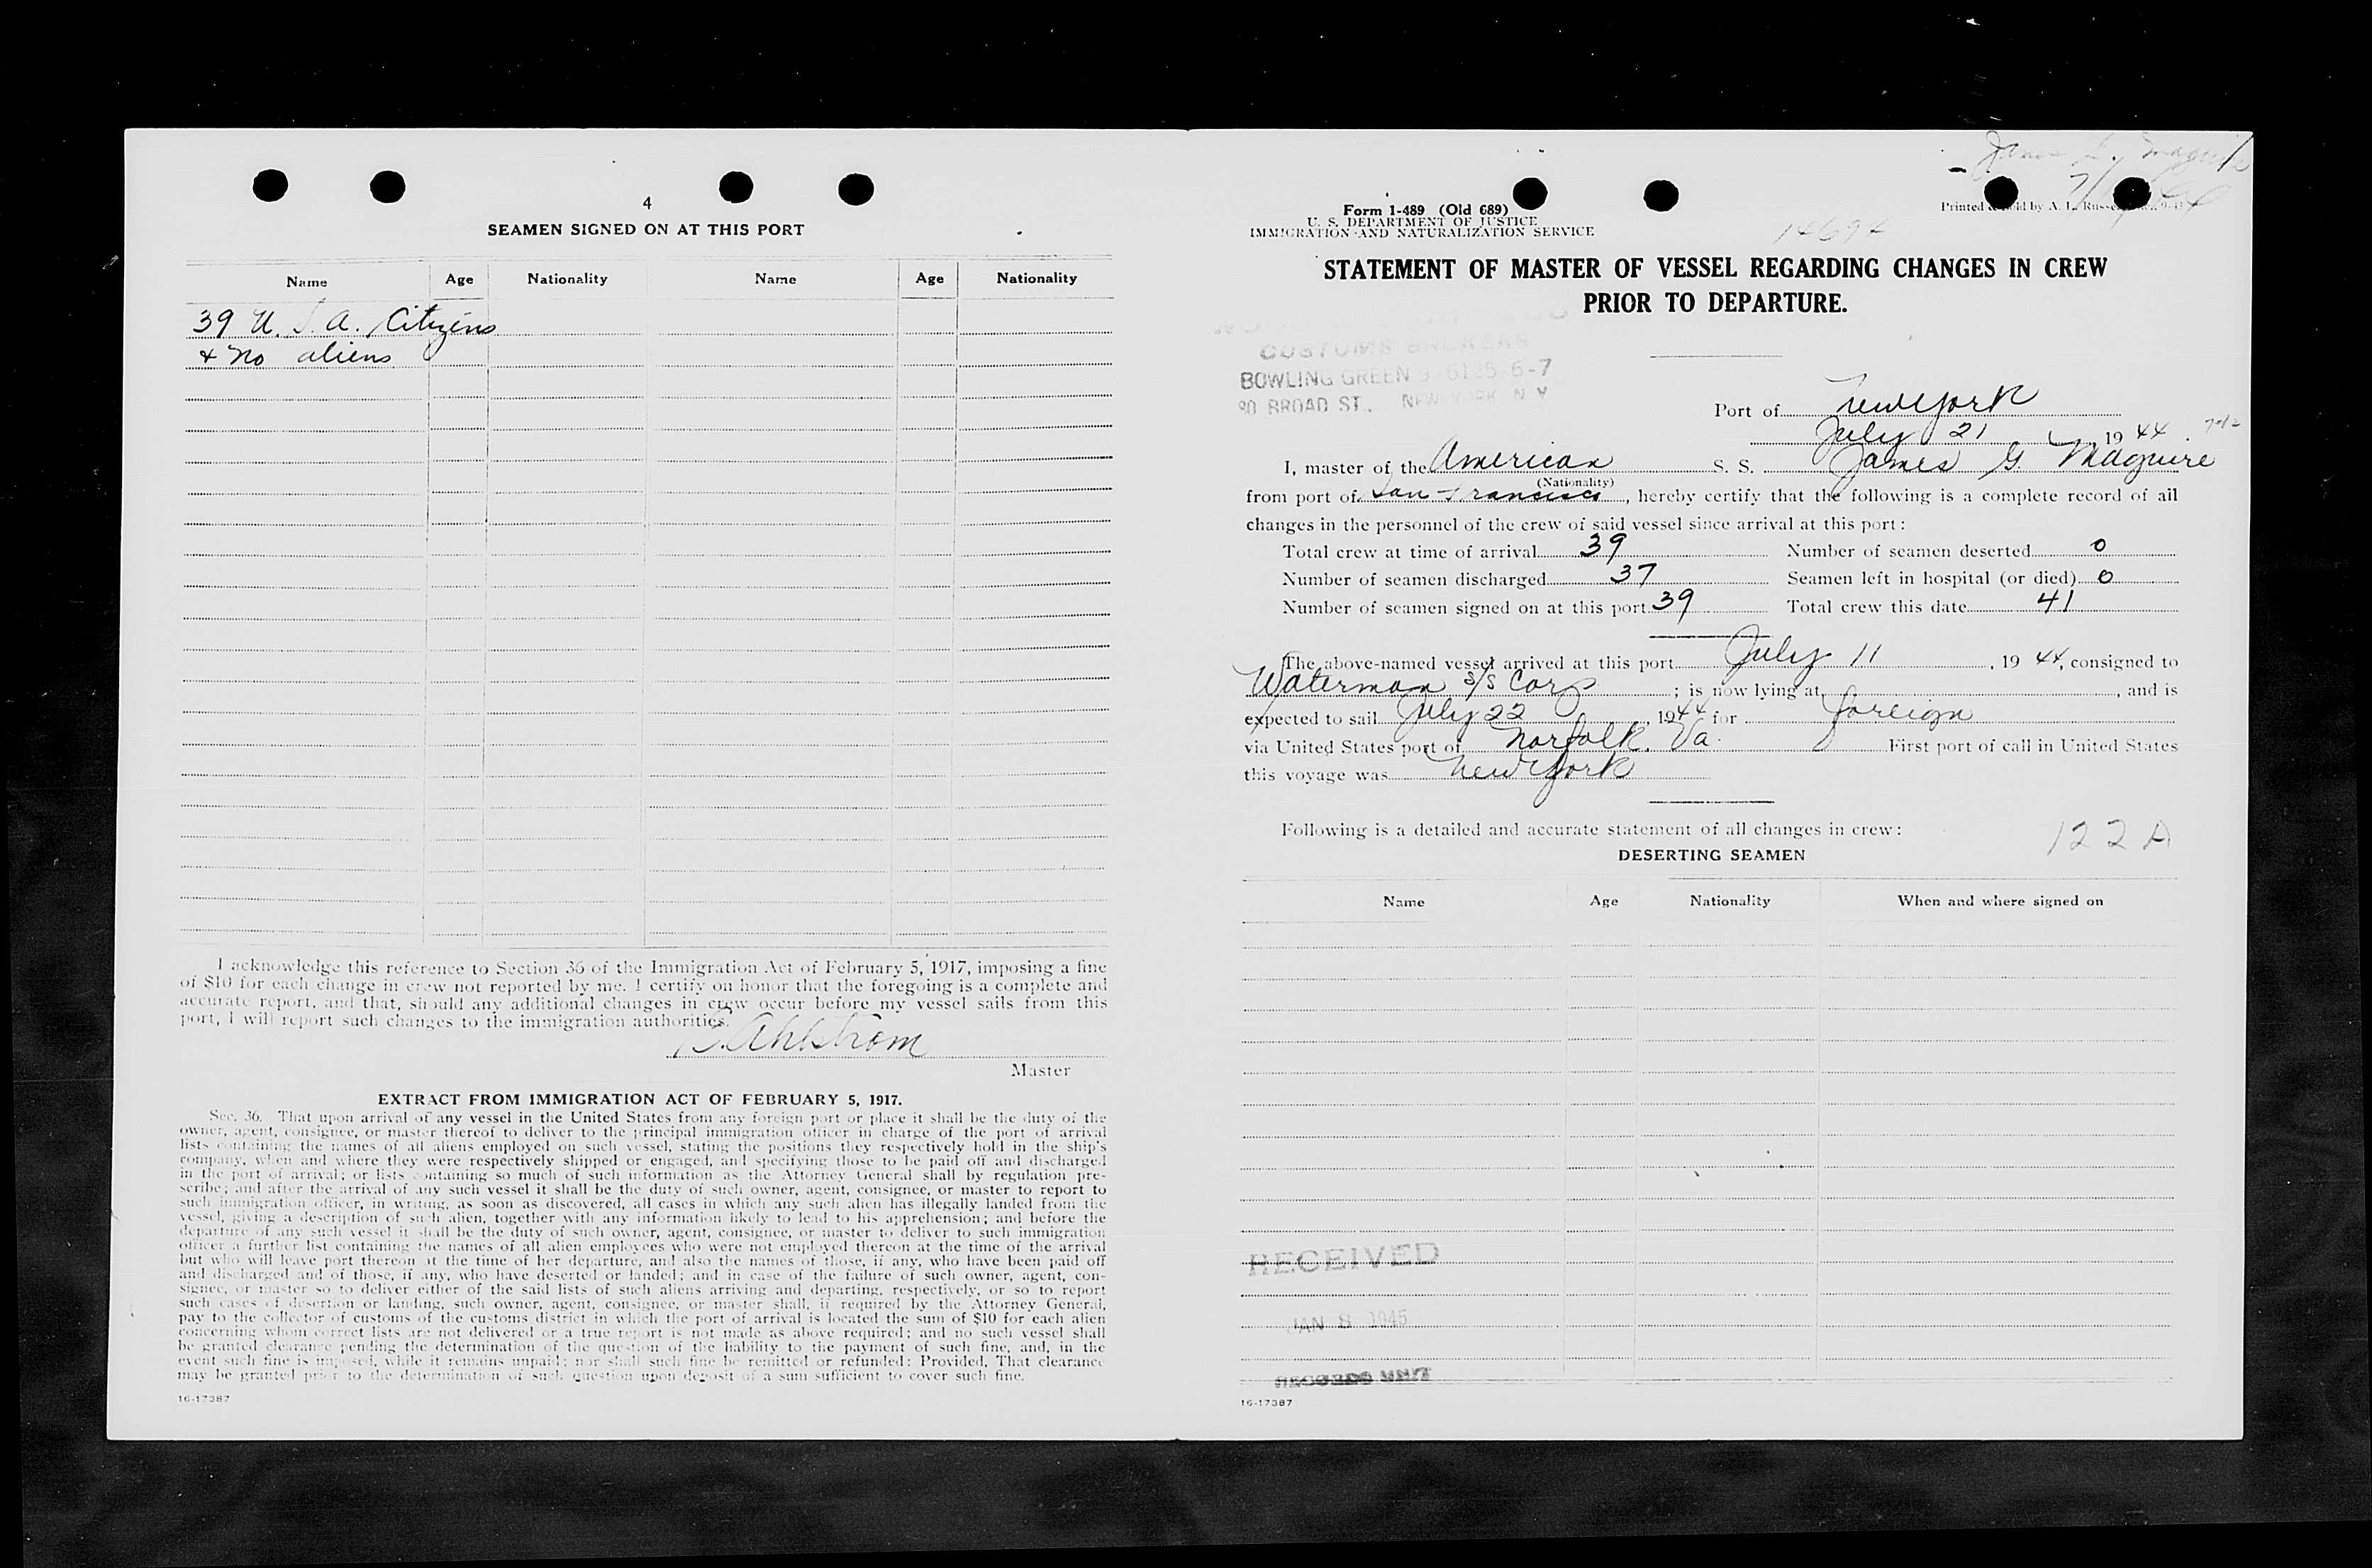 4
SEAMEN SIGNED ON AT THIS PORT
Name Age Nationality Name Age Nationality
39 U. S. A. Citizens
& no aliens
I acknowledge this reference to Section 36 of the Immigration Act of February 5, 1917, imposing a fine
of $10 for each change in crew not reported by me. I certify on honor that the foregoing is a complete and
accurate report, and that, should any additional changes in crew occur before my vessel sails from this
port, I will report such changes to the immigration authorities.
Ahlstrom
Master
EXTRACT FROM IMMIGRATION ACT OF FEBRUARY 5, 1917.
Sec. 36. That upon arrival of any vessel in the United States from any foreign port or place it shall be the duty of the
owner, agent, consignee, or master thereof to deliver to the principal immigration officer in charge of the port of arrival
lists containing the names of all aliens employed on such vessel, stating the positions they respectively hold in the ship's
company, when and where they were respectively shipped or engaged, and specifying those to be paid off and discharged
in the port of arrival; or lists containing so much of such information as the Attorney General shall by regulation pre-
scribe; and after the arrival of any such vessel it shall be the duty of such owner, agent, consignee, or master to report to
such immigration officer, in writing, as soon as discovered, all cases in which any such alien has illegally landed from the
vessel, giving a description of such alien, together with any information likely to lead to his apprehension; and before the
departure of any such vessel it shall be the duty of such owner, agent, consignee, or master to deliver to such immigration
officer a further list containing the names of all alien employees who were not employed thereon at the time of the arrival
but who will leave port thereon at the time of her departure, and also the names of those, if any, who have been paid off
and discharged and of those, if any, who have deserted or landed; and in case of the failure of such owner, agent, con-
signee, or master so to deliver either of the said lists of such aliens arriving and departing, respectively, or so to report
such cases of desertion or landing, such owner, agent, consignee, or master shall, if required by the Attorney General,
pay to the collector of customs of the customs district in which the port of arrival is located the sum of $10 for each alien
concerning whom correct lists are not delivered or a true report is not made as above required; and no such vessel shall
be granted clearance pending the determination of the question of the liability to the payment of such fine, and, in the
event such fine is imposed, while it remains unpaid; nor shall such fine be remitted or refunded: Provided, That clearance
may be granted prior to the determination of such question upon deposit of a sum sufficient to cover such fine.
16-17387
Form 1-489 (Old 689)
U. S. DEPARTMENT OF JUSTICE
IMMIGRATION AND NATURALIZATION SERVICE
Printed & Sold by A. L.
STATEMENT OF MASTER OF VESSEL REGARDING CHANGES IN CREW
PRIOR TO DEPARTURE.
CUSTOMS BROKERS
BOWLING GREEN 9-6125-6-7
80 BROAD ST., NEW YORK N Y
Port of New York
July 21, 1944.
I, master of the American S. S. James G. Maguire
(Nationality)
from port of San Francisco, hereby certify that the following is a complete record of all
changes in the personnel of the crew of said vessel since arrival at this port:
Total crew at time of arrival 39 Number of seamen deserted 0
Number of seamen discharged 37 Seamen left in hospital (or died) 0
Number of seamen signed on at this port 39 Total crew this date 41
The above-named vessel arrived at this port July 11, 1944, consigned to
Waterman S/S Corp; is now lying at , and is
expected to sail July 22, 1944 for foreign
via United States port of Norfolk, Va. First port of call in United States
this voyage was New York
Following is a detailed and accurate statement of all changes in crew:
122 A
DESERTING SEAMEN
Name Age Nationality When and where signed on
RECEIVED
JAN 8 1945
RECORDS UNIT
16-17387